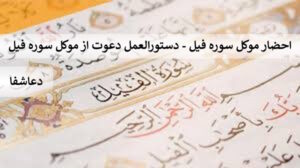 احضار موکل سوره فیل - دستورالعمل دعوت از موکل سوره فیل
دعاشفا
سورة الفيل
الله الرحمن الرحيم